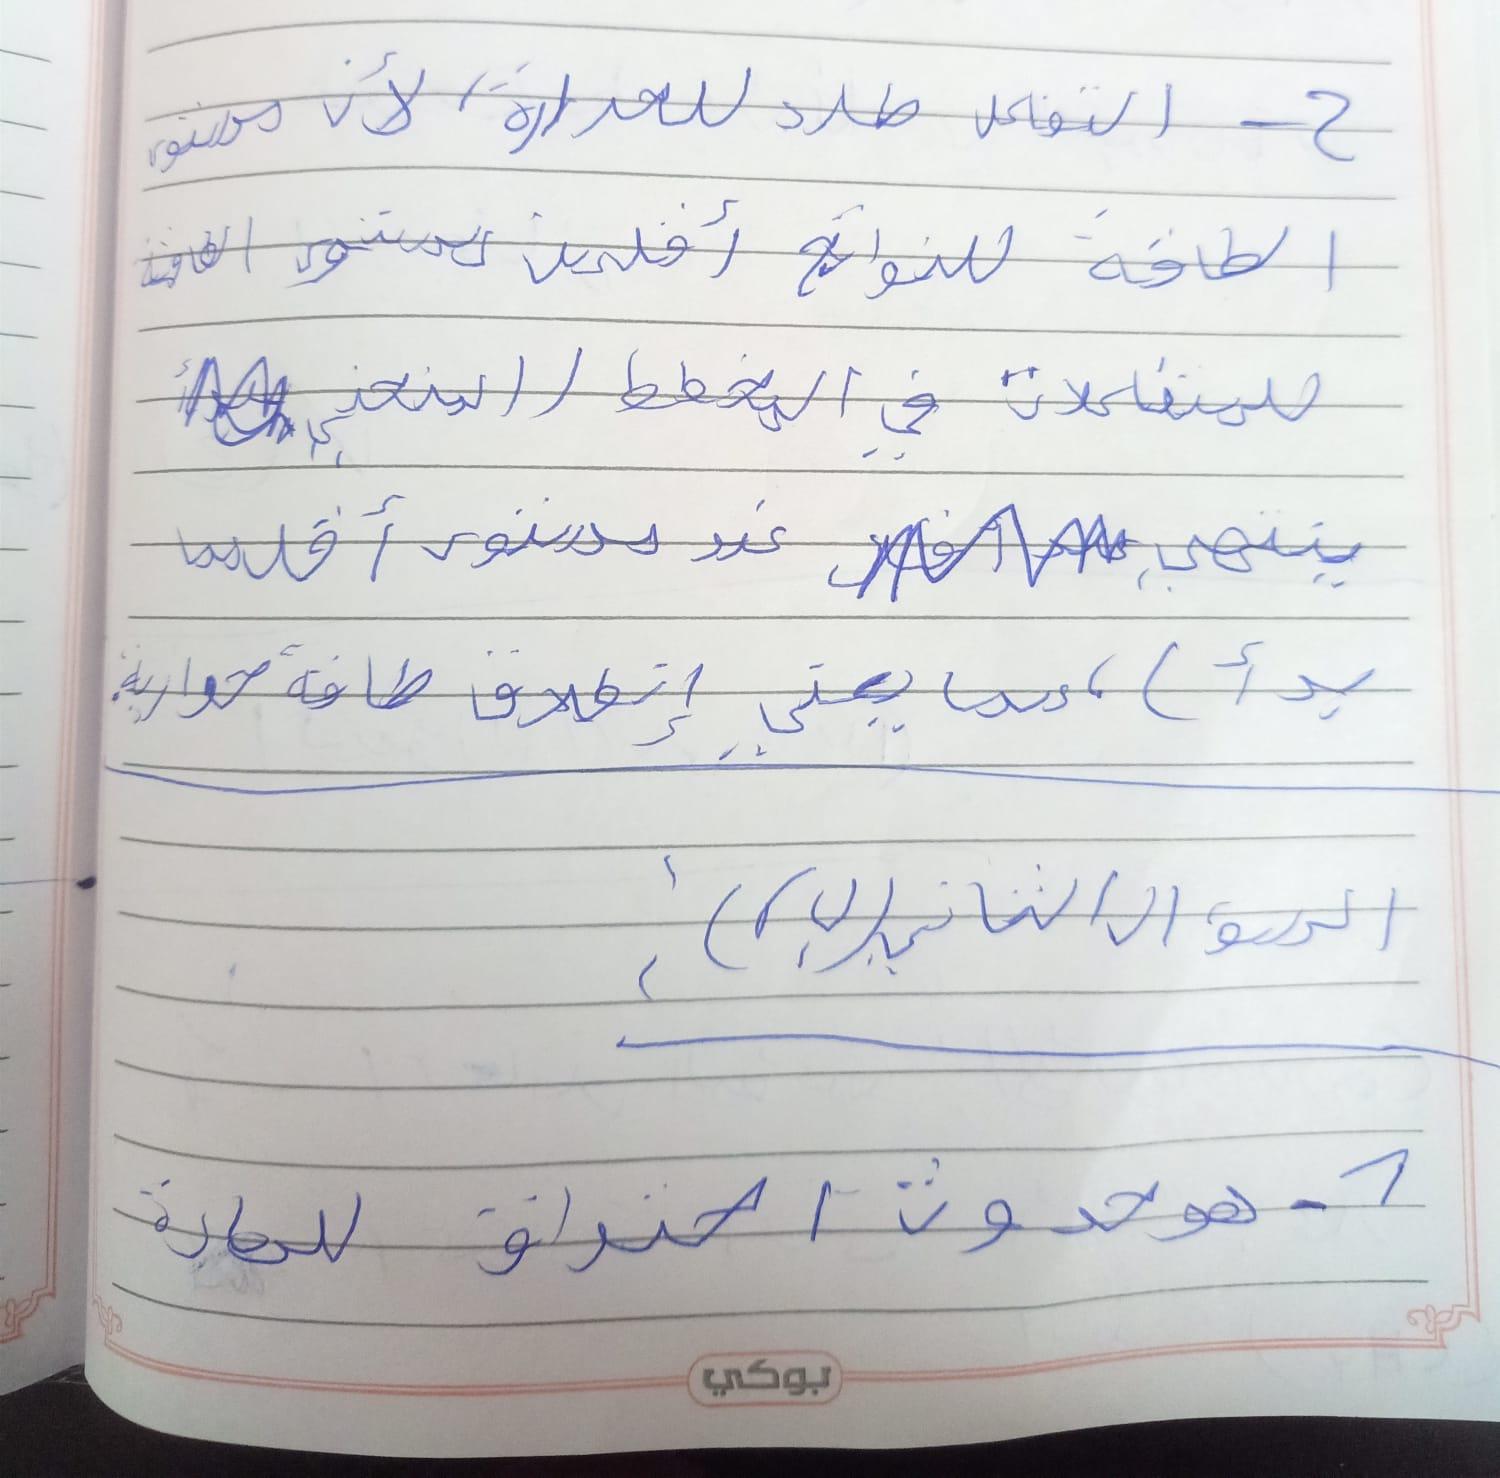 2- التفاعل طارد للحرارة، لأن مستوى
الطاقة للنواتج أقل من مستوى الطاقة
للمتفاعلات في المخطط (المنحنى
ينتهي عند مستوى أقل مما
بدأ)، مما يعني إنطلاق طاقة حرارية.
السؤال الثاني (
1- هو حدوث احتراق للمادة
بوكي